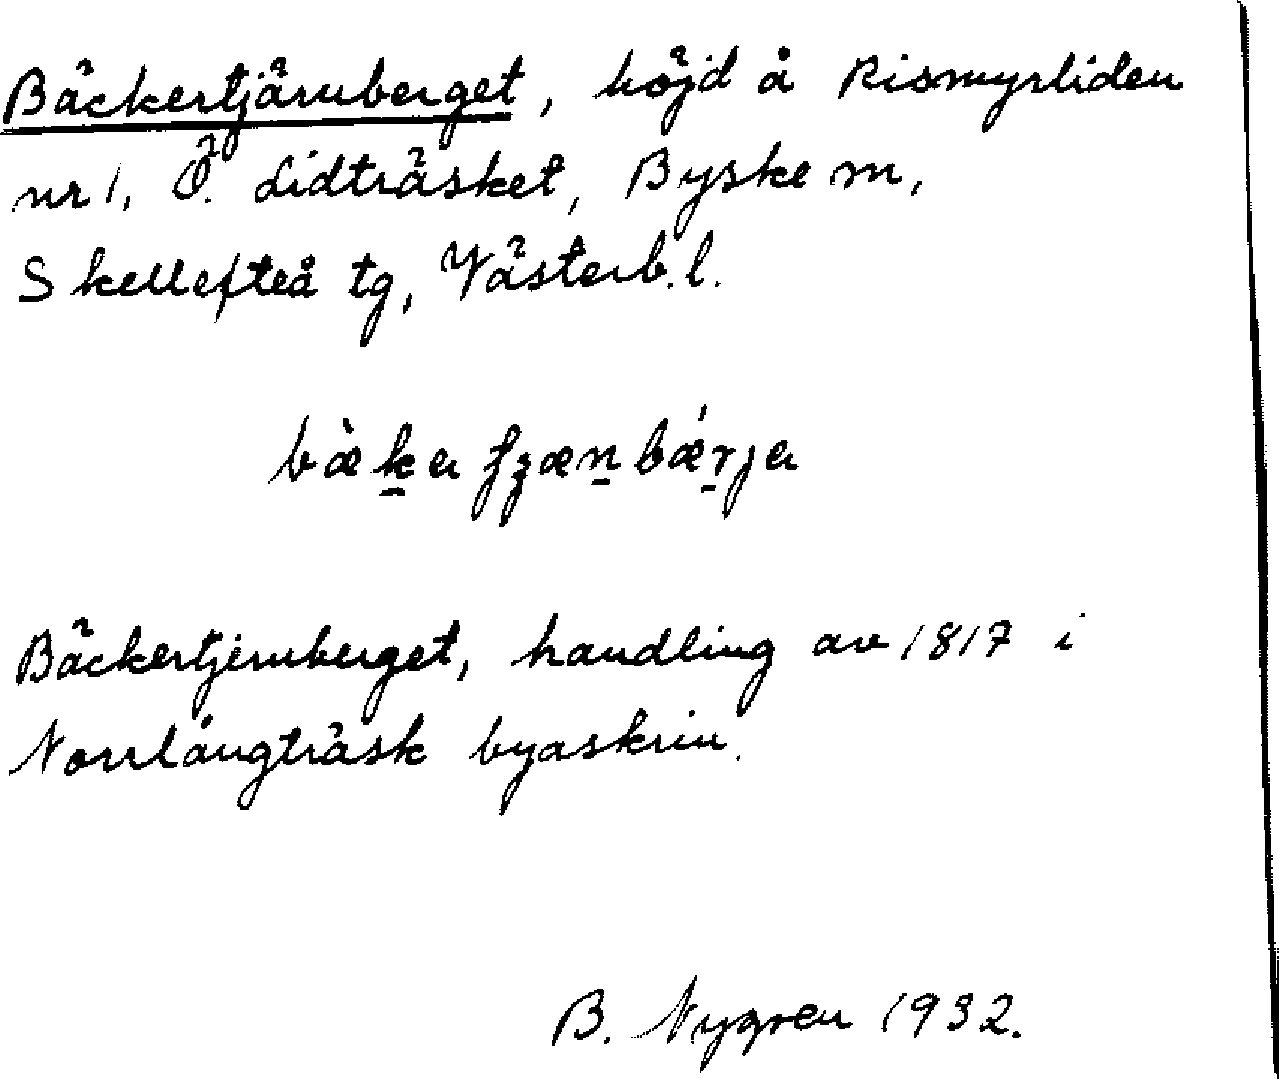 Bäckertjärnberget, höjd å Rismyrliden
nr 1, Ö. Lidträsket, Byske m,
Skellefteå tg, Västerb. l.
bæ̀ḵa ʃʒæṉbǽṟja
Bäckertjernberget, handling av 1817 i
Norrlångträsk byaskrin.
B. Nygren 1932.